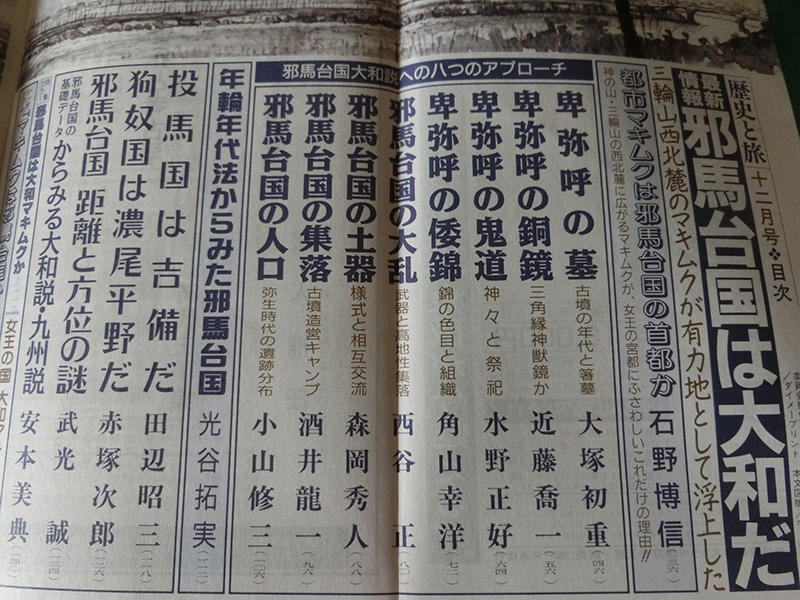 歴史と旅 十二月号❖目次
最新情報 邪馬台国は大和だ
三輪山西北麓のマキムクが有力地として浮上した
都市マキムクは邪馬台国の首都か 石野博信(三六)
神の山・三輪山の西北麓に広がるマキムクが、女王の宮都にふさわしいこれだけの理由!!
邪馬台国大和説への八つのアプローチ
卑弥呼の墓 古墳の年代と箸墓 大塚初重(四六)
卑弥呼の銅鏡 三角縁神獣鏡か 近藤喬一(五六)
卑弥呼の鬼道 神々と祭祀 水野正好(六四)
卑弥呼の倭錦 錦の色目と組織 角山幸洋(七二)
邪馬台国の大乱 武器と高地性集落 西谷正(八〇)
邪馬台国の土器 様式と相互交流 森岡秀人(八八)
邪馬台国の集落 古墳造営キャンプ 酒井龍一(九六)
邪馬台国の人口 弥生時代の遺跡分布 小山修三(一〇六)
年輪年代法からみた邪馬台国 光谷拓実(一一二)
投馬国は吉備だ 田辺昭三(一一八)
狗奴国は濃尾平野だ 赤塚次郎(一二六)
邪馬台国 距離と方位の謎 武光誠(一三四)
邪馬台国の基礎データからみる大和説・九州説 安本美典(一四〇)
邪馬台国は大和マキムクか
女王の国 大和